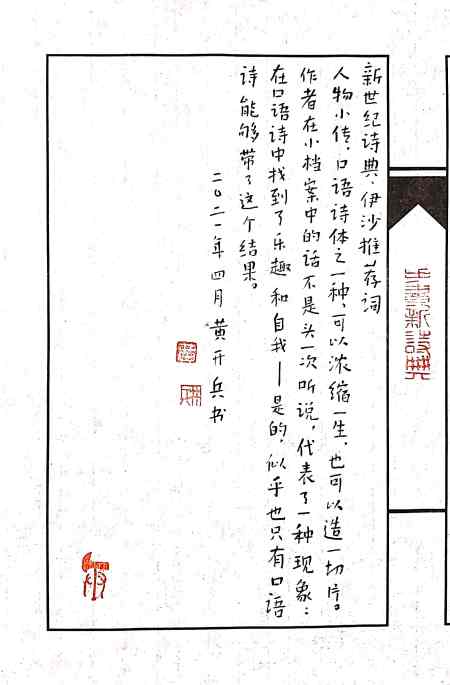 新世纪诗典·伊沙推荐词
人物小传,口语诗体之一种,可以浓缩一生,也可以造一切片。
作者在小档案中的话不是头一次听说,代表了一种现象:
在口语诗中找到了乐趣和自我——是的,似乎也只有口语
诗能够带了这个结果。
二〇二一年四月 黄开兵书